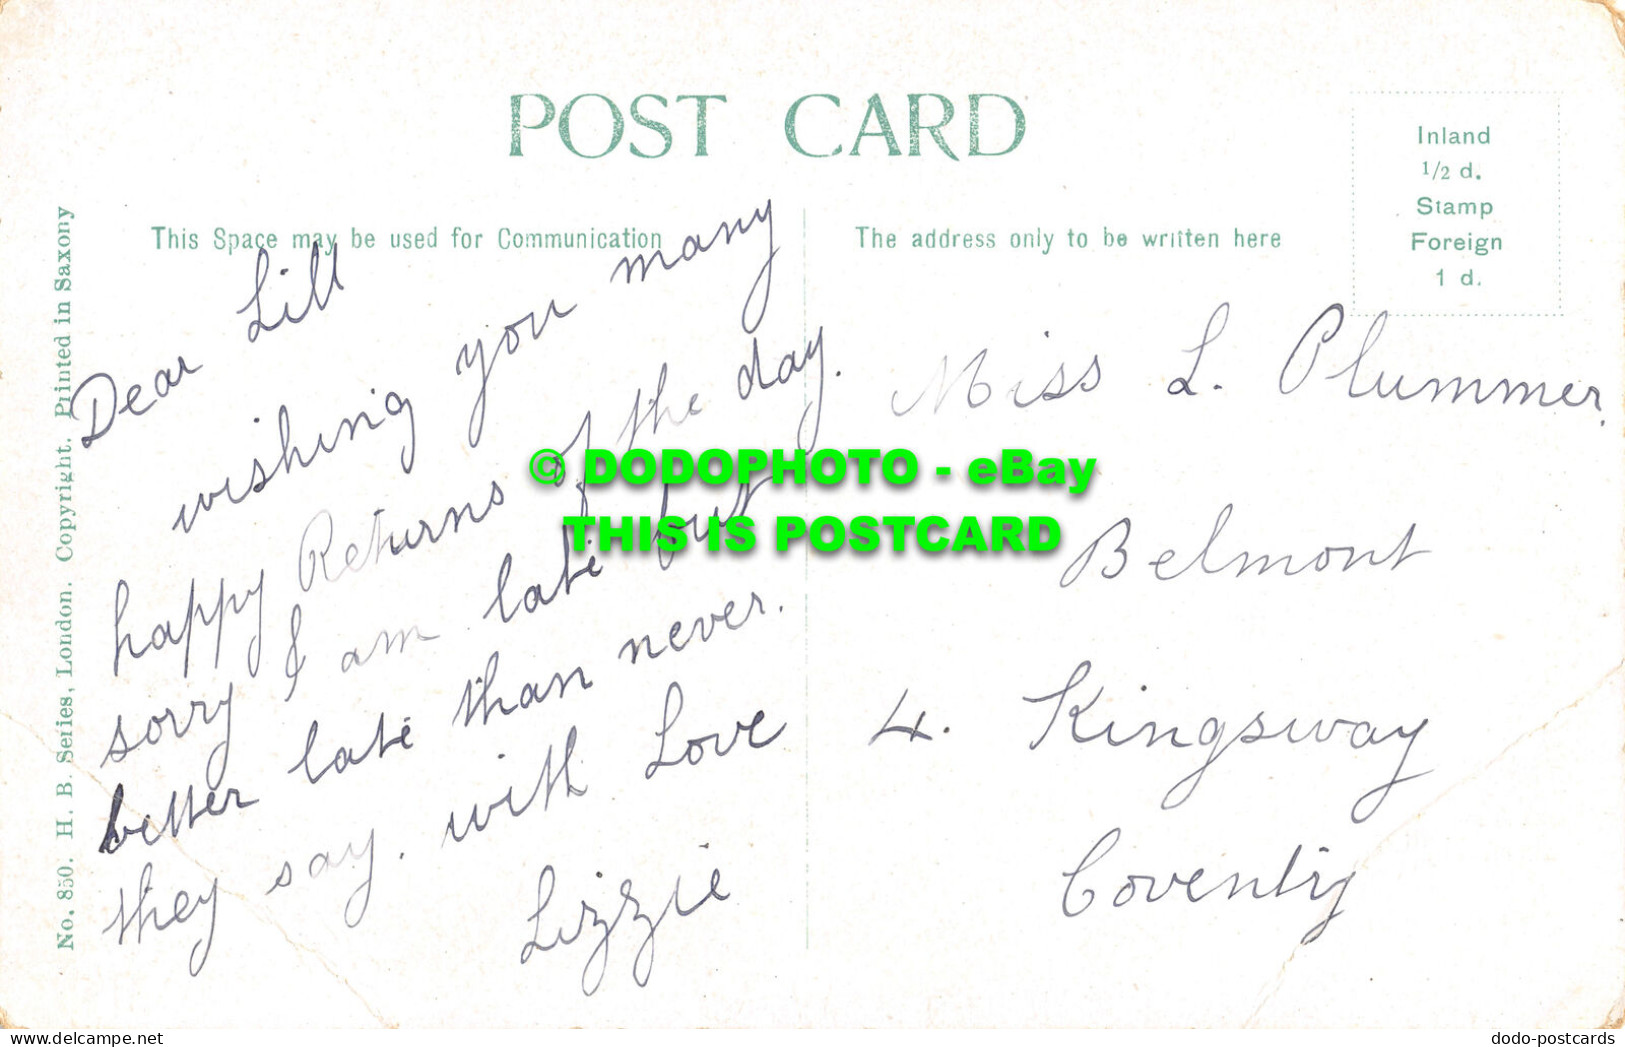 POST CARD
Inland
1/2 d.
Stamp
Foreign
1 d.
This Space may be used for Communication
The address only to be written here
No. 850. H. B. Series, London. Copyright. Printed in Saxony
Dear Lill
wishing you many
happy Returns of the day.
sorry I am late but
better late than never.
they say. with Love
Lizzie
Miss L. Plummer.
Belmont
4. Kingsway
Coventry
© DODOPHOTO - eBay
THIS IS POSTCARD
dodo-postcards